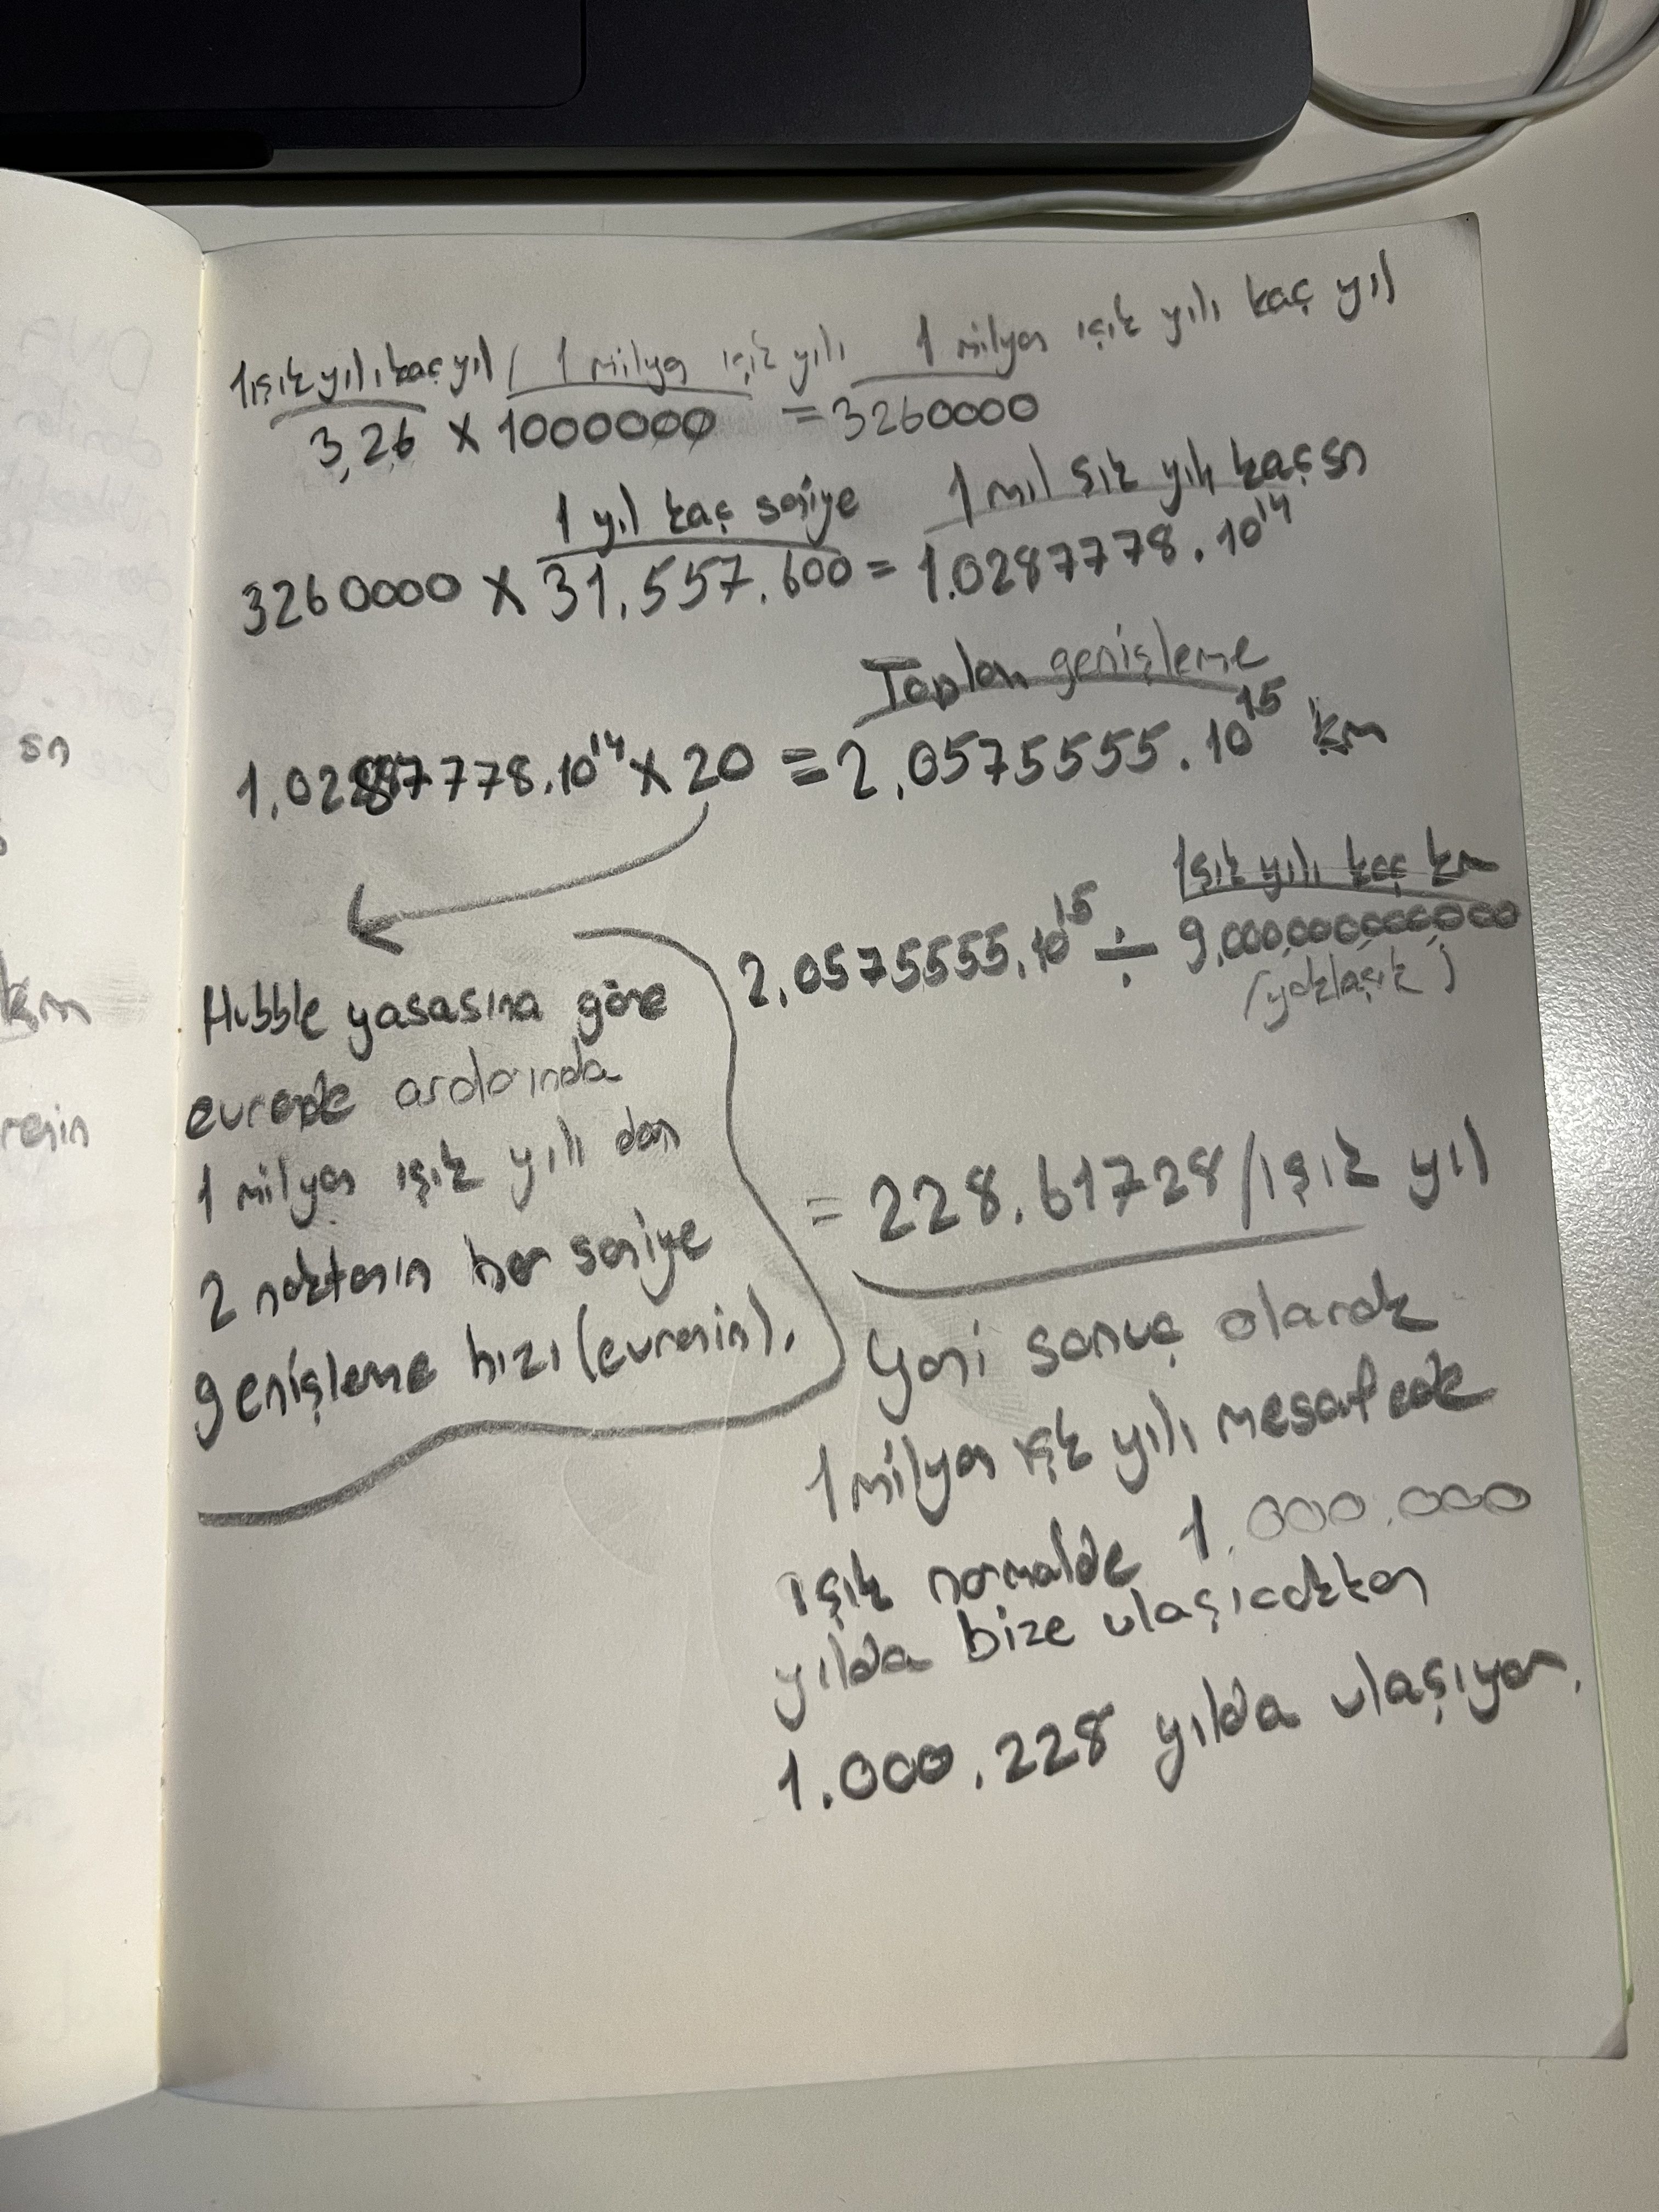 1 ışık yılı kaç yıl / 1 milyon ışık yılı 1 milyon ışık yılı kaç yıl
3,26 x 1000000 = 3260000
1 yıl kaç saniye 1 mil şık yılı kaç sn
3260000 x 31.557.600 = 1.0287778.10¹⁴
Toplam genişleme
1,02887778.10¹⁴ x 20 = 2,0575555.10¹⁵ km
Işık yılı kaç km
2,0575555.10¹⁵ ÷ 9,000,000,000,000
(yaklaşık)
= 228.61728/ışık yıl
Hubble yasasına göre
evrende aralarında
1 milyon ışık yılı olan
2 noktanın her saniye
genişleme hızı (evrenin).
Yani sonuç olarak
1 milyon ışık yılı mesafede
ışık normalde 1.000.000
yılda bize ulaşıcakken
1.000.228 yılda ulaşıyor.
sn
km